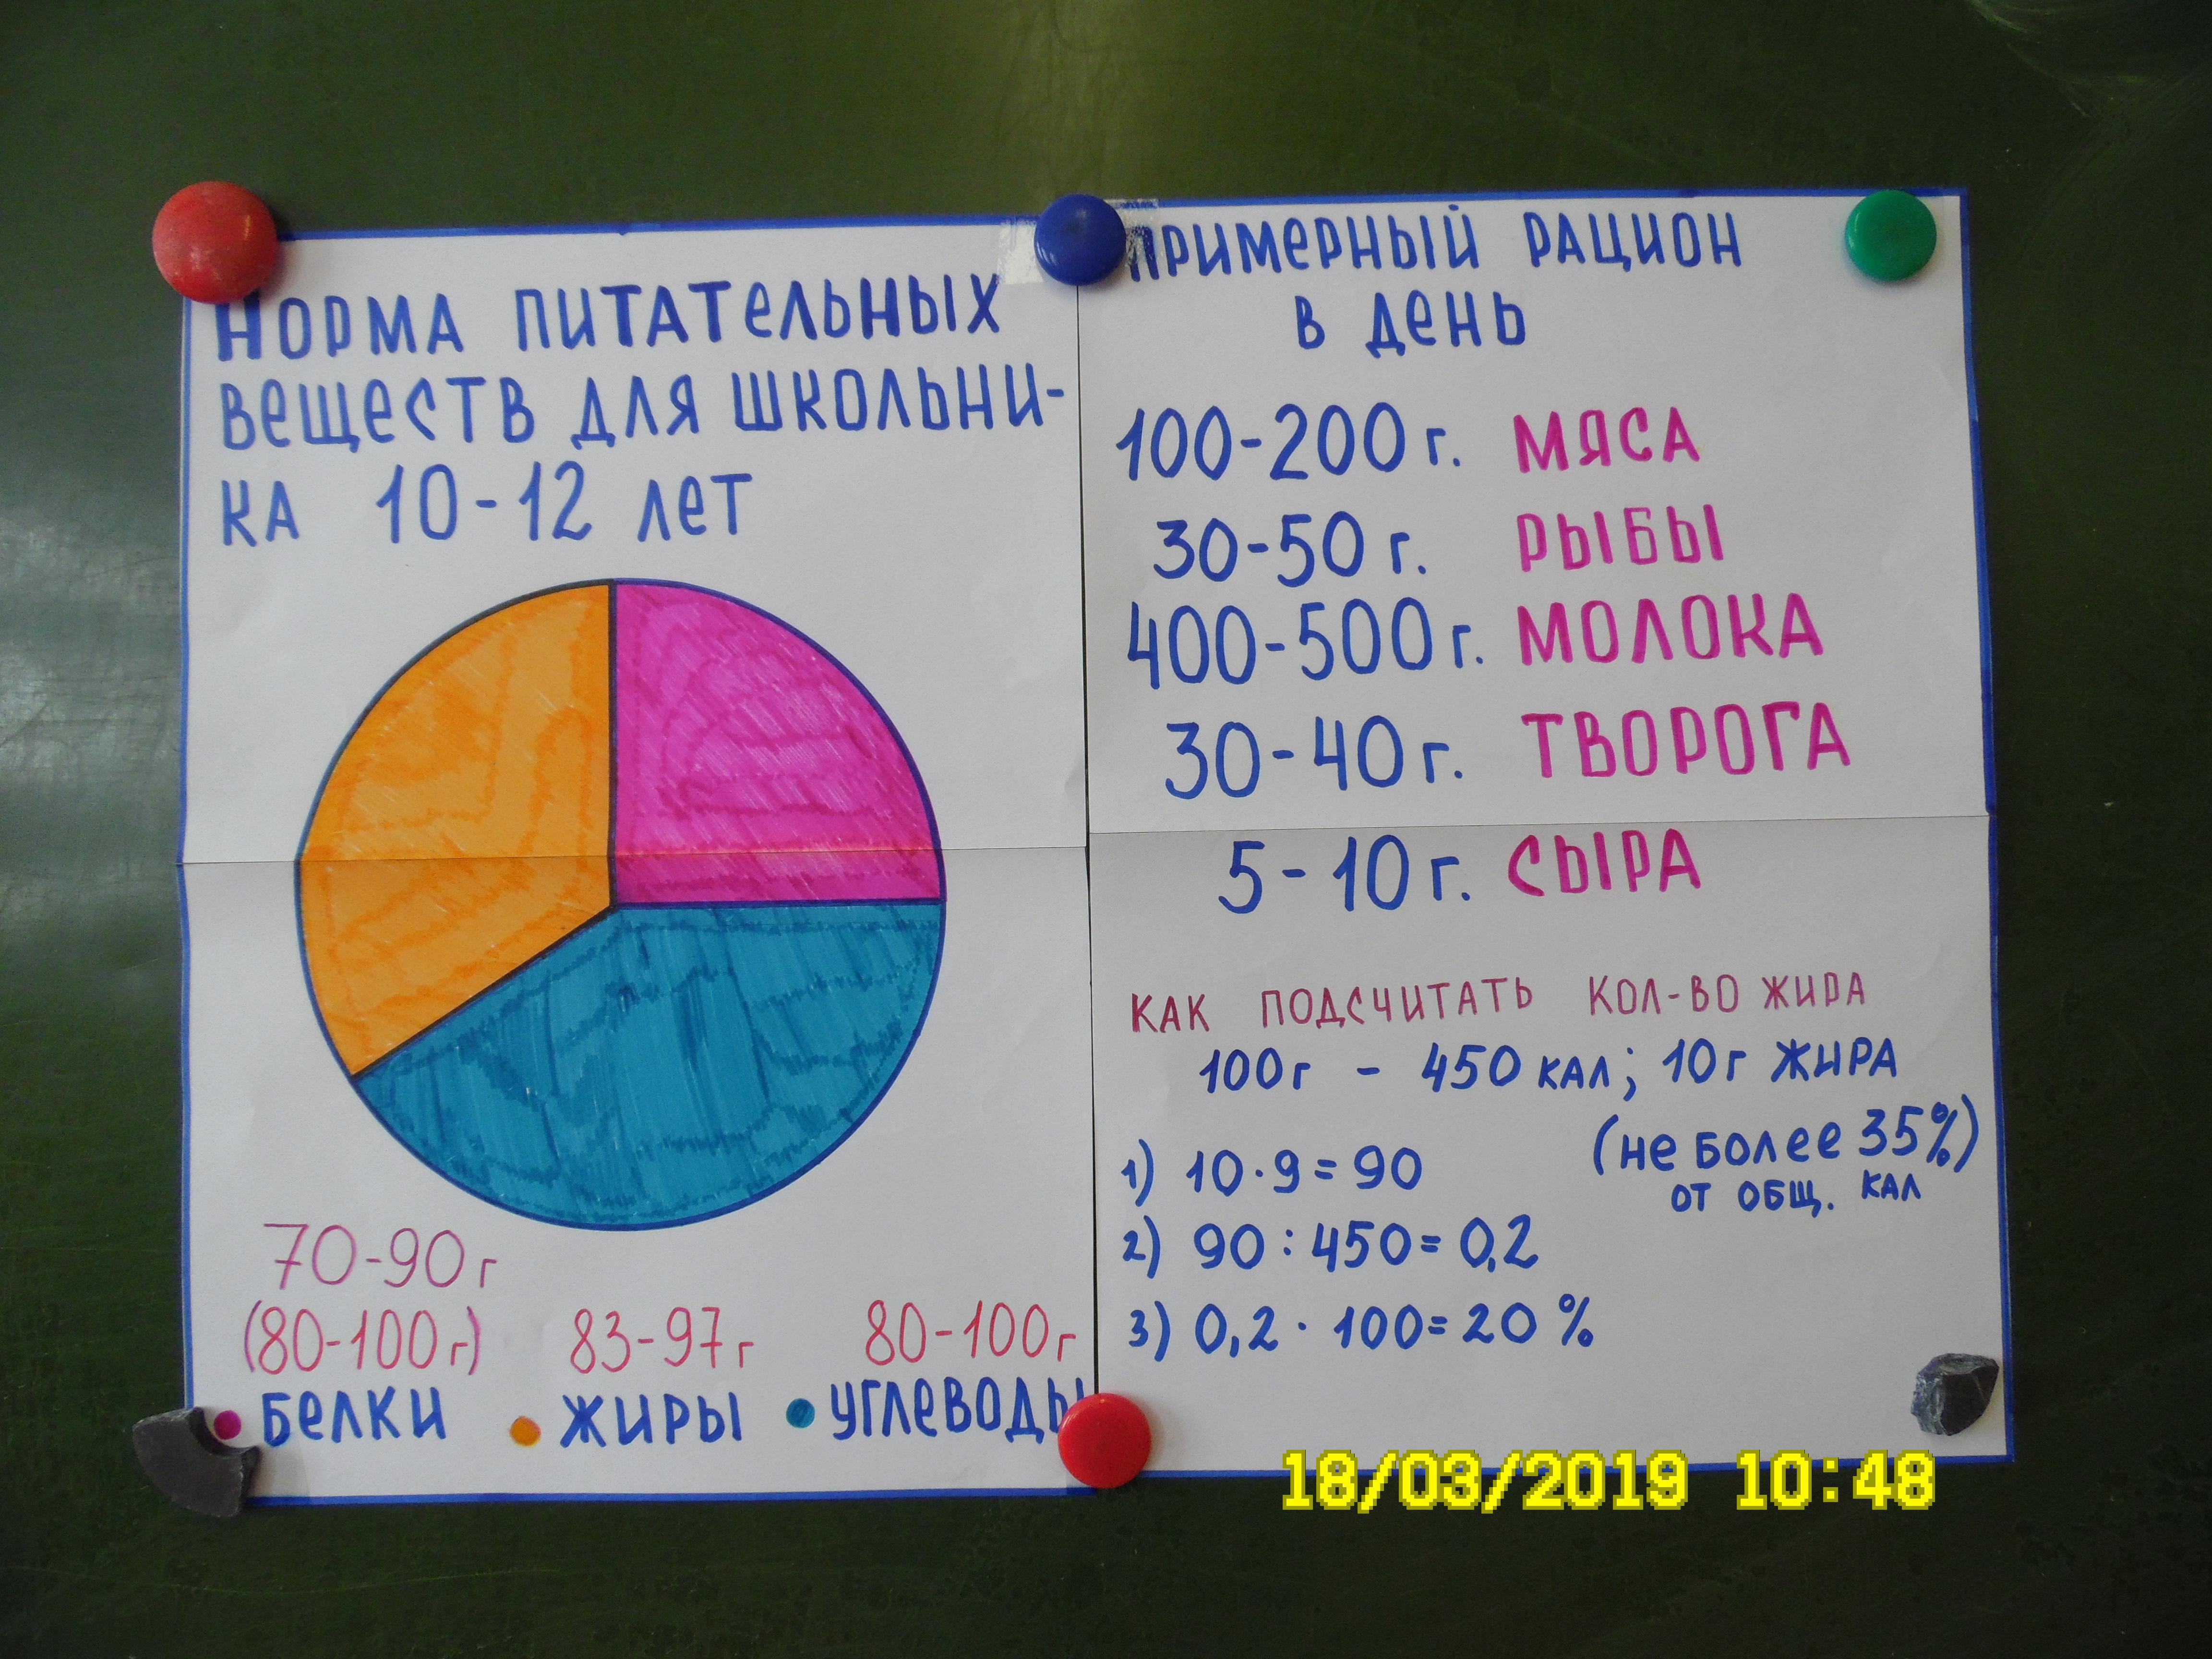 Норма питательных
веществ для школьни-
ка 10-12 лет
70-90 г
(80-100 г) 83-97 г 80-100 г
белки жиры углеводы
Примерный рацион
в день
100-200 г. мяса
30-50 г. рыбы
400-500 г. молока
30-40 г. творога
5-10 г. сыра
как подсчитать кол-во жира
100г - 450 кал; 10 г жира
(не более 35%)
от общ. кал
1) 10·9=90
2) 90:450=0,2
3) 0,2·100=20%
18/03/2019 10:48